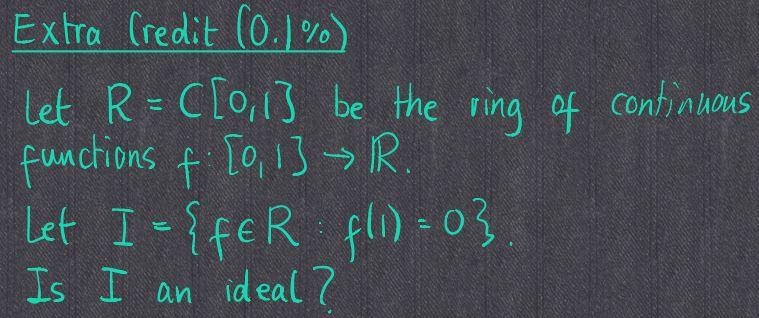 Extra Credit (0.1%)
Let R = C[0,1] be the ring of continuous
functions f: [0,1] → ℝ.
Let I = {f∈R : f(1) = 0}.
Is I an ideal?